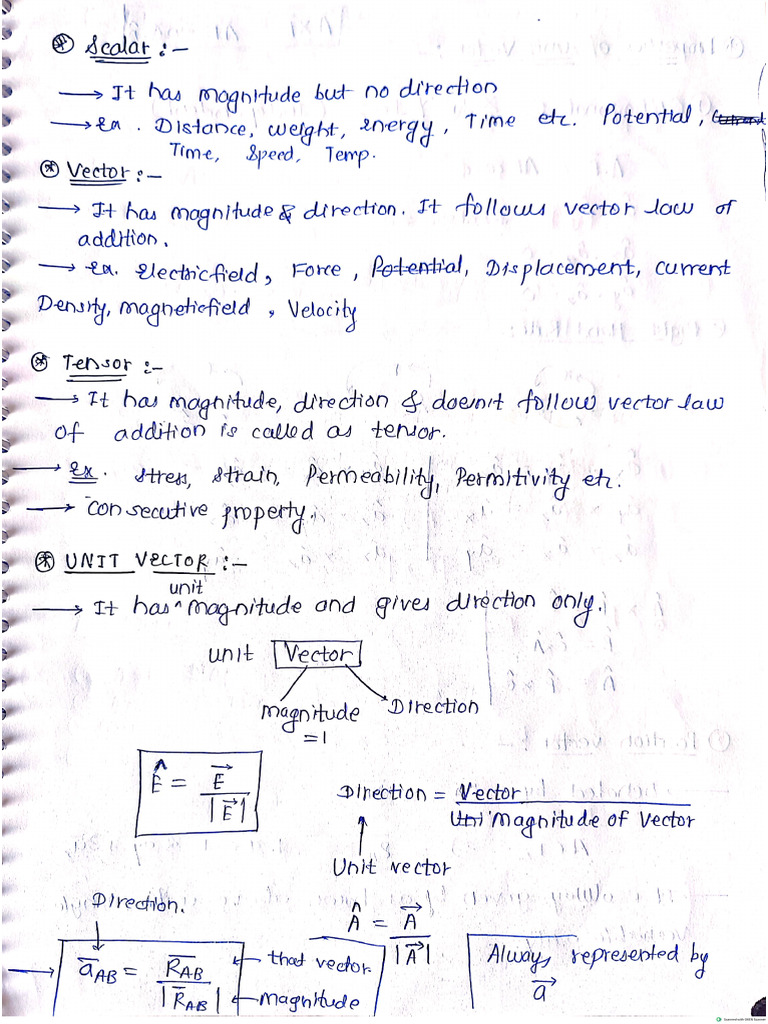 ⊛ Scalar :-
→ It has magnitude but no direction
→ Ex. Distance, weight, energy, Time etc. Potential,
Time, Speed, Temp.
⊛ Vector :-
→ It has magnitude & direction. It follows vector law of
addition.
→ Ex. Electricfield, Force, Potential, Displacement, current
Density, magneticfield, Velocity
⊛ Tensor :-
→ It has magnitude, direction & doesn't follow vector law
of addition is called as tensor.
→ Ex. Stress, Strain, Permeability, Permitivity etc.
→ Consecutive property.
⊛ UNIT VECTOR :-
unit
→ It has ^ magnitude and gives direction only.
unit Vector
magnitude Direction
= 1
Ê = E⃗ / |E⃗|
Direction = Vector / Uni Magnitude of Vector
Unit vector
Direction.
Â = A⃗ / |A⃗|
→ a̅AB = R̅AB / |R̅AB|
← that vector
← magnitude
Always represented by
a⃗